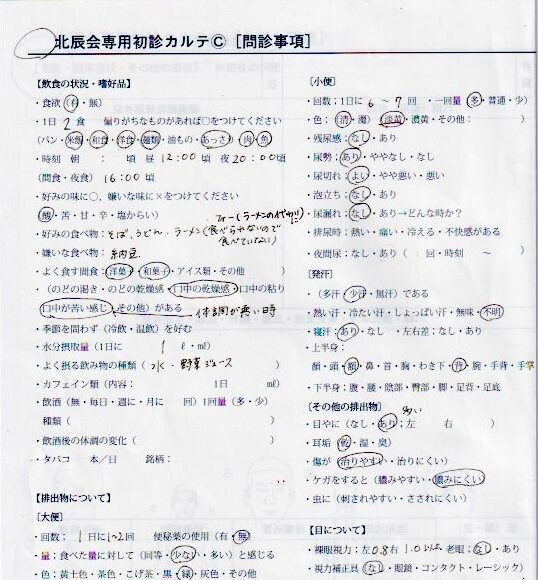 北辰会専用初診カルテ©［問診事項］
【飲食の状況・嗜好品】
・食欲（有・無）
・1日 2 食　偏りがちなものがあれば○をつけてください
（パン・米飯・和食・洋食・麺類・油もの・あっさり・肉・魚）
・時刻　朝　：　頃　昼 12:00 頃　夜 20:00頃
（間食・夜食）16:00頃
・好みの味に○、嫌いな味に×をつけてください
（酸・苦・甘・辛・塩からい）
・好みの食べ物：そば、うどん、ラーメン（食べられないので食べていない）
フォー（ラーメンの代わりに）
・嫌いな食べ物：納豆
・よく食す間食：（洋菓子・和菓子・アイス類・その他　）
・（のどの渇き・のどの乾燥感・口中の乾燥感・口中の粘り
口中が苦い感じ・その他）がある　体調が悪い時
・季節を問わず（冷飲・温飲）を好む
・水分摂取量（1日に　1　ℓ・mℓ）
・よく摂る飲み物の種類（水、野菜ジュース　）
・カフェイン類（内容：　1日　mℓ）
・飲酒（無・毎日・週に・月に　回）1回量（多・少）
種類（　）
・飲酒後の体調の変化（　）
・タバコ　本／日　銘柄：
【排出物について】
［大便］
・回数：1日に1~2回　便秘薬の使用（有・無）
・量：食べた量に対して（同等・少ない・多い）と感じる
・色：黄土色・茶色・こげ茶・黒・緑・灰色・その他
［小便］
・回数：1日に 6 ～ 7 回　・一回量（多・普通・少）
・色：（清・濁）（淡黄・濃黄・その他：　）
・残尿感：なし・あり
・尿勢：あり・ややなし・なし
・尿切れ：よい・やや悪い・悪い
・泡立ち：なし・あり
・尿漏れ：なし・あり→どんな時か？
・排尿時：熱い・痛い・冷える・不快感がある
・夜間尿：なし・あり（　回・時刻　～　）
［発汗］
・（多汗・少汗・無汗）である
・熱い汗・冷たい汗・しょっぱい汗・無味・不明）
・寝汗：あり・なし　・左右差：なし・あり
・上半身：
顔・頭・額・鼻・首・胸・わき下・背・腕・手背・手掌
・下半身：腹・腰・陰部・臀部・脚・足背・足底
［その他の排出物］
・目やに（なし・あり：左　右　）
・耳垢（乾・湿・臭）
・傷が（治りやすい・治りにくい）
・ケガをすると（膿みやすい・膿みにくい）
・虫に（刺されやすい・さされにくい）
【目について】
・裸眼視力：左0.8右1.0　老眼：なし・あり
・視力補正具（なし・眼鏡・コンタクト・レーシック）